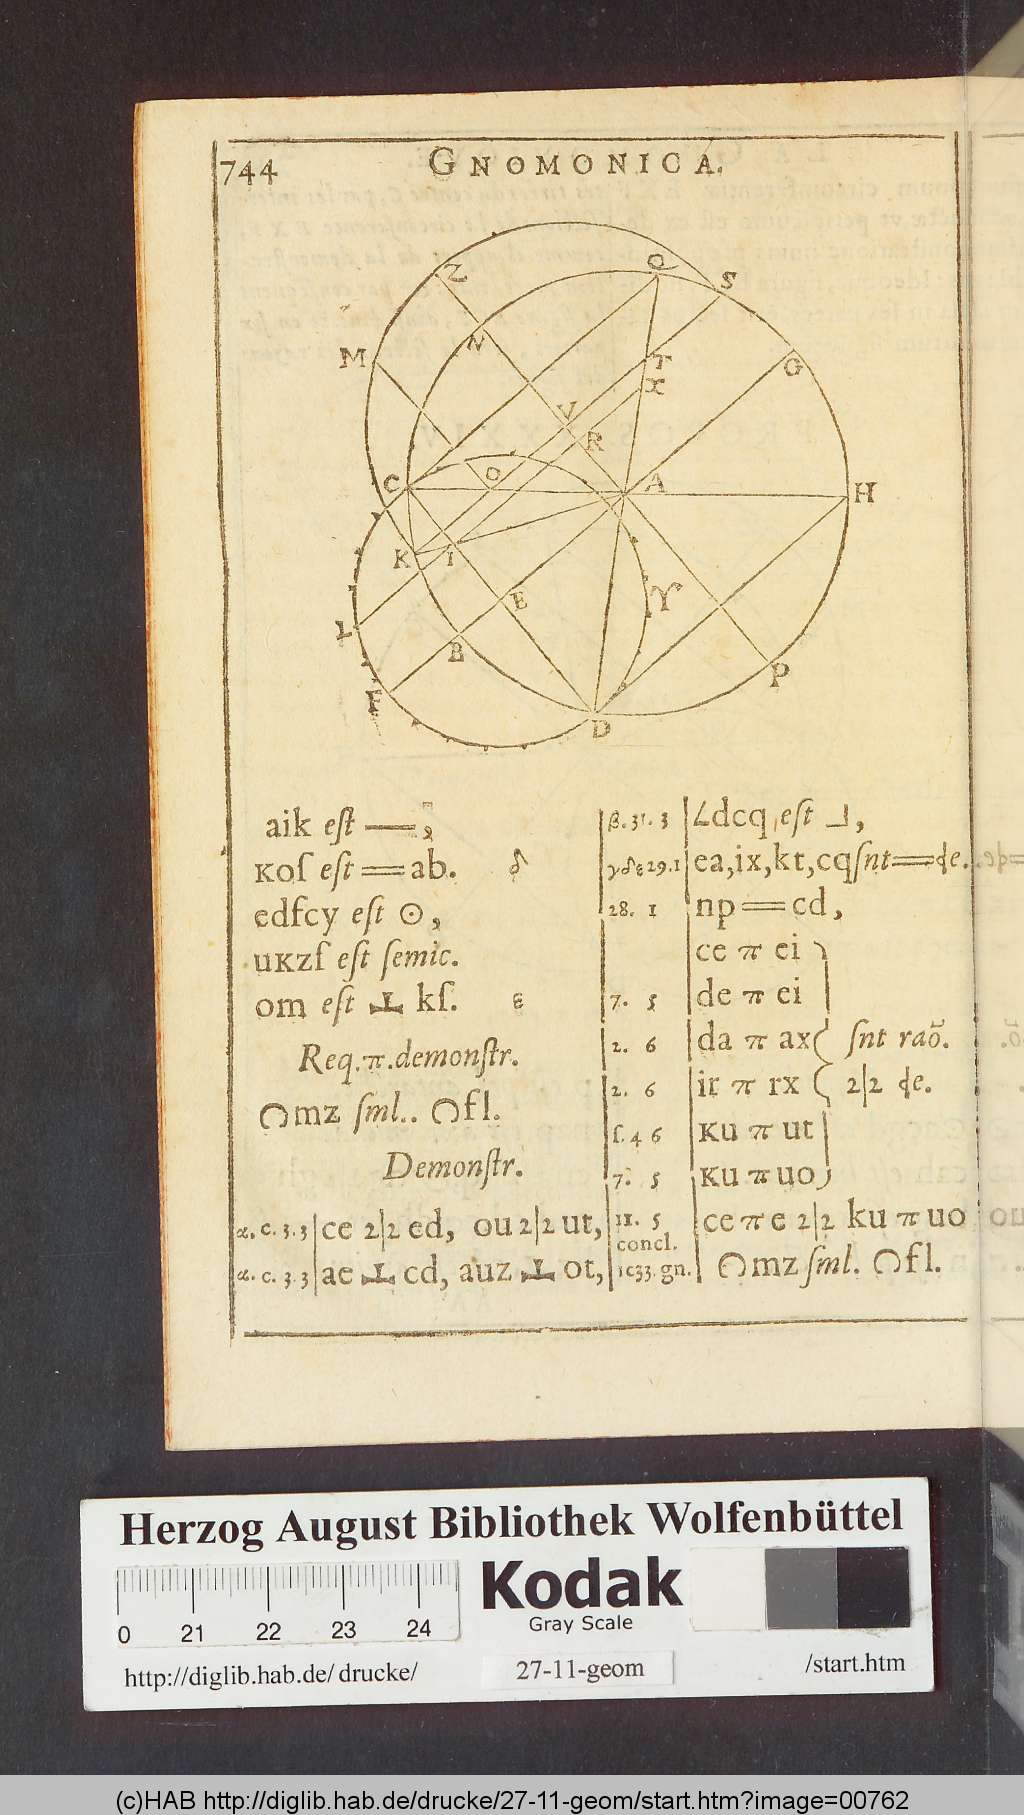 744
GNOMONICA.
Z
Q
S
N
M
T
X
G
V
R
C
O
A
H
K
I
E
♈
L
B
P
F
D
aik eſt —,
κoſ eſt = ab. δ
edfcy eſt ☉,
uκzſ eſt ſemic.
om eſt ⊥ kſ. ε
Req.π.demonſtr.
⌒mz ſml.. ⌒fl.
Demonſtr.
α. c. 3. 3 | ce 2|2 ed, ou 2|2 ut,
α. c. 3. 3 | ae ⊥ cd, auz ⊥ ot,
β. 31. 3 | ∠dcq, eſt ⅃,
γδε29.1 | ea,ix,kt,cq ſnt = de.
28. 1 | np = cd,
ce π ei
7. 5 | de π ei
2. 6 | da π ax ſnt raõ.
2. 6 | ir π rx 2|2 de.
ſ. 4 6 | κu π ut
7. 5 | κu π uo
11. 5 | ce π e 2|2 ku π uo
concl.
1c33.gn. | ⌒mz ſml. ⌒fl.
Herzog August Bibliothek Wolfenbüttel
Kodak
Gray Scale
0 21 22 23 24
http://diglib.hab.de/drucke/ 27-11-geom /start.htm
(c)HAB http://diglib.hab.de/drucke/27-11-geom/start.htm?image=00762